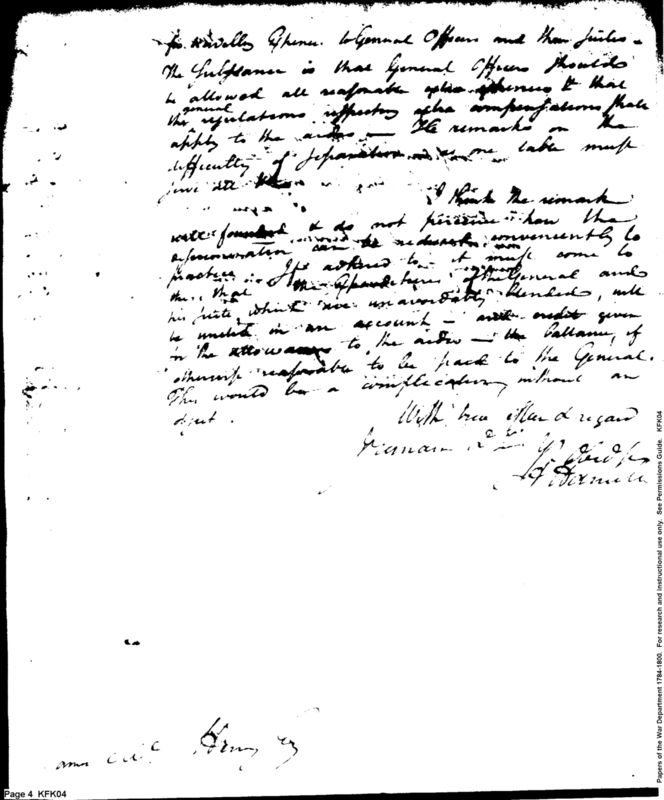 for travelling Expence to General Officers and their Suites –
The Substance is that General Officers should
be allowed all reasonable extra expences & that
general
the regulations respecting extra compensations shall
apply to the aides – He remarks on the
difficulty of separation as one table must
serve all
I think the remark
well founded & do not perceive how the
can be conveniently to
practice. If adhered to it must come to
this that the Expenditures of the General and
his Suite, which are unavoidably blended, will
be united in an account – and credit given
for the allowances to the aides – the ballance, if
otherwise reasonable to be paid to the General.
This would be a complication without an
object.
With true esteem & regard
I remain Dr Sir Yr Obed Ser
A Hamilton
James McHenry Esq
Page 4 KFK04
Papers of the War Department 1784-1800. For research and instructional use only. See Permissions Guide. KFK04